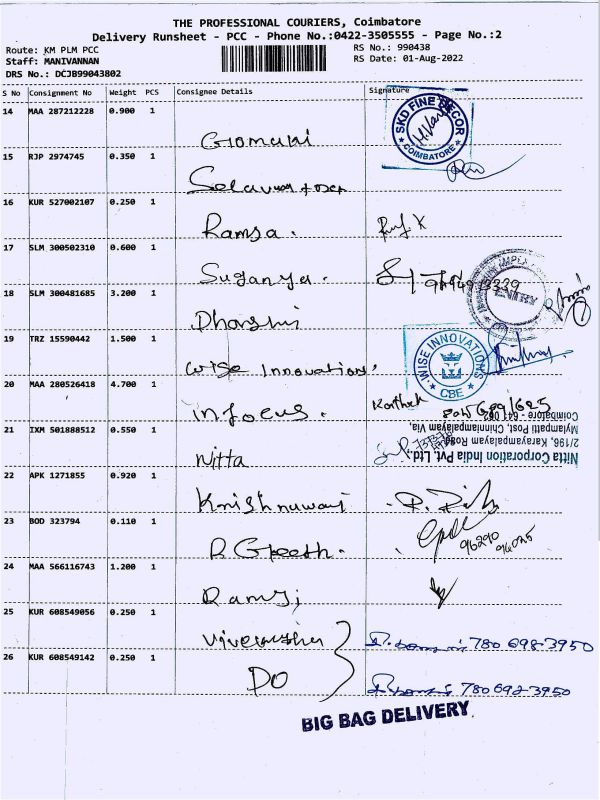 THE PROFESSIONAL COURIERS, Coimbatore
Delivery Runsheet - PCC - Phone No.:0422-3505555 - Page No.:2
Route: KM PLM PCC
RS No.: 990438
Staff: MANIVANNAN
RS Date: 01-Aug-2022
DRS No.: DCJB99043802
S No Consignment No Weight PCS Consignee Details Signature
14 MAA 287212228 0.900 1
SKD FINE DECOR
COIMBATORE
15 RJP 2974745 0.350 1
16 KUR 527002107 0.250 1 Ramsa.
17 SLM 300502310 0.600 1 Suganya.
18 SLM 300481685 3.200 1 Dharshni
ENTRY
19 TRZ 15590442 1.500 1 Wise Innovations,
WISE INNOVATIONS
CBE
20 MAA 280526418 4.700 1 infocus. Karthick
21 IXM 501888512 0.550 1 Nitta
Nitta Corporation India Pvt. Ltd.,
2/196, Karayampalayam Road,
Mylampatti Post, Chinniyampalayam Via,
Coimbatore - 641 062
22 APK 1271855 0.920 1
23 BOD 323794 0.110 1
24 MAA 566116743 1.200 1 Ramji
25 KUR 608549056 0.250 1 780 698-3950
26 KUR 608549142 0.250 1 DO 780 692-3950
BIG BAG DELIVERY